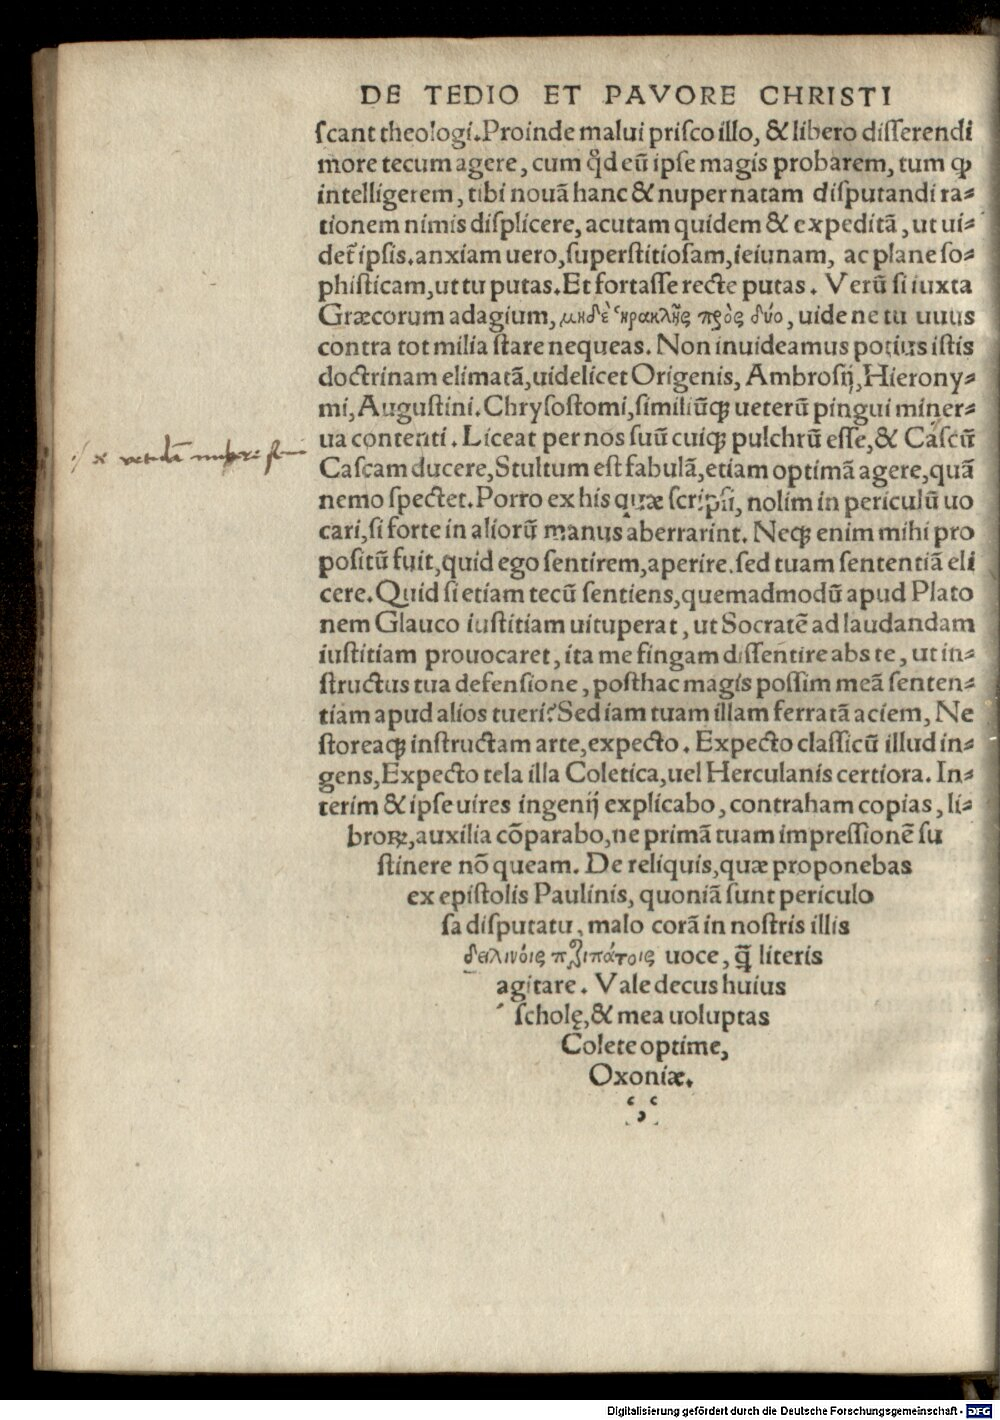 DE TEDIO ET PAVORE CHRISTI
ſcant theologi. Proinde malui priſco illo, & libero diſſerendi
more tecum agere, cum qđ eū ipſe magis probarem, tum ꝙ
intelligerem, tibi nouā hanc & nuper natam diſputandi ra-
tionem nimis diſplicere, acutam quidem & expeditā, ut ui-
det̄ ipſis. anxiam uero, ſuperſtitioſam, ieiunam, ac plane ſo-
phiſticam, ut tu putas. Et fortaſſe recte putas. Verū ſi iuxta
Græcorum adagium, μηδὲ ἡρακλῆς πρὸς δύο, uide ne tu uuus
contra tot milia ſtare nequeas. Non inuideamus potius iſtis
doctrinam elimatā, uidelicet Origenis, Ambroſij, Hierony-
mi, Auguſtini. Chryſoſtomi, ſimiliūqꝫ ueterū pingui miner-
ua contenti. Liceat per nos ſuū cuiqꝫ pulchrū eſſe, & Caſcū
Caſcam ducere, Stultum eſt fabulā, etiam optimā agere, quā
nemo ſpectet. Porro ex his quæ ſcripſi, nolim in periculū uo
cari, ſi forte in aliorū manus aberrarint. Neqꝫ enim mihi pro
poſitū fuit, quid ego ſentirem, aperire. ſed tuam ſententiā eli
cere. Quid ſi etiam tecū ſentiens, quemadmodū apud Plato
nem Glauco iuſtitiam uituperat, ut Socratē ad laudandam
iuſtitiam prouocaret, ita me fingam diſſentire abs te, ut in-
ſtructus tua defenſione, poſthac magis poſſim meā ſenten-
tiam apud alios tueri? Sed iam tuam illam ferratā aciem, Ne
ſtoreaqꝫ inſtructam arte, expecto. Expecto claſſicū illud in-
gens, Expecto tela illa Coletica, uel Herculanis certiora. In-
terim & ipſe uires ingenij explicabo, contraham copias, li-
broꝝ, auxilia cōparabo, ne primā tuam impreſſionē ſu
ſtinere nō queam. De reliquis, quæ proponebas
ex epiſtolis Paulinis, quoniā ſunt periculo
ſa diſputatu, malo corā in noſtris illis
δειλινοῖς περιπάτοις uoce, q̄ literis
agitare. Vale decus huius
ſcholę, & mea uoluptas
Colete optime,
Oxoniæ.
Digitalisierung gefördert durch die Deutsche Forschungsgemeinschaft - DFG